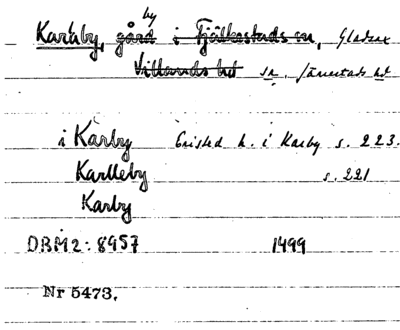 by
Karaby, gård i Fjälkestads sn, Gladsax
Villands hd sn. Järrestads hd
i Karby Cristed h. i Karby s. 223.
Karlleby s. 221
Karby
DRM 2: 8957 1499
Nr 5473.